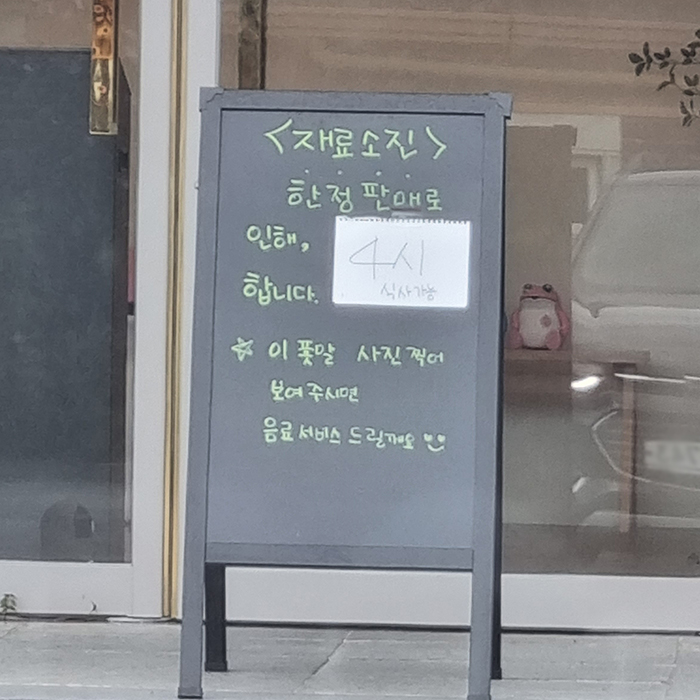 <재료소진>
한정판매로
인해,
4시
식사가능
합니다.
☆ 이 푯말 사진 찍어
보여주시면
음료 서비스 드릴게요